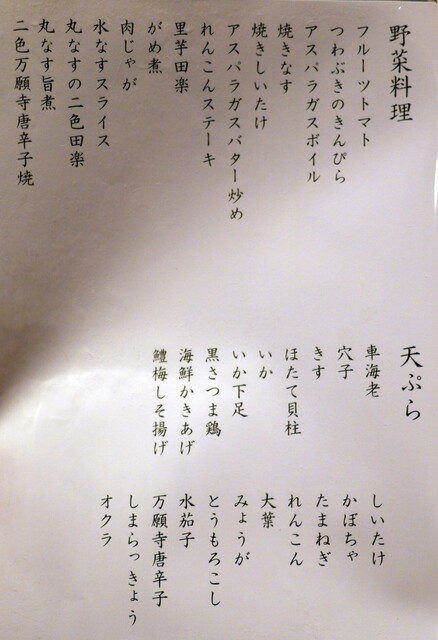 野菜料理
フルーツトマト
つわぶきのきんぴら
アスパラガスボイル
焼きなす
焼きしいたけ
アスパラガスバター炒め
れんこんステーキ
里芋田楽
がめ煮
肉じゃが
水なすスライス
丸なすの二色田楽
丸なす旨煮
二色万願寺唐辛子焼
天ぷら
車海老
穴子
きす
ほたて貝柱
いか
いか下足
黒さつま鶏
海鮮かきあげ
鱧梅しそ揚げ
しいたけ
かぼちゃ
たまねぎ
れんこん
大葉
みょうが
とうもろこし
水茄子
万願寺唐辛子
しまらっきょう
オクラ